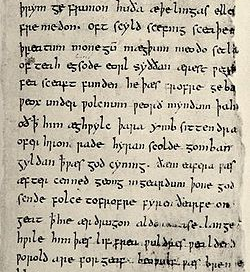 þrym ge frunon huða æþelingas elle
fre medon. oft scyld scefing sceaþe
þreatum monegū mægþum meodo setla
of teah egsode eorl syððan ærest wear
fea sceaft funden he þæs frofre geba
weox under wolcnum weorð myndum þah
oð ꝥ him æghwylc þara ymb sittendra
ofer hron rade hyran scolde gomban
gyldan ꝥ wæs god cyning. ðæm eafera wæs
æfter cenned geong ingeardum þone god
sende folce tofrofre fyren ðearfe on
geat ꝥ hie ær drugon aldor ase. lange
hwile him þæs lif frea wuldres wealdend
worold are for geaf. beowulf wæs breme